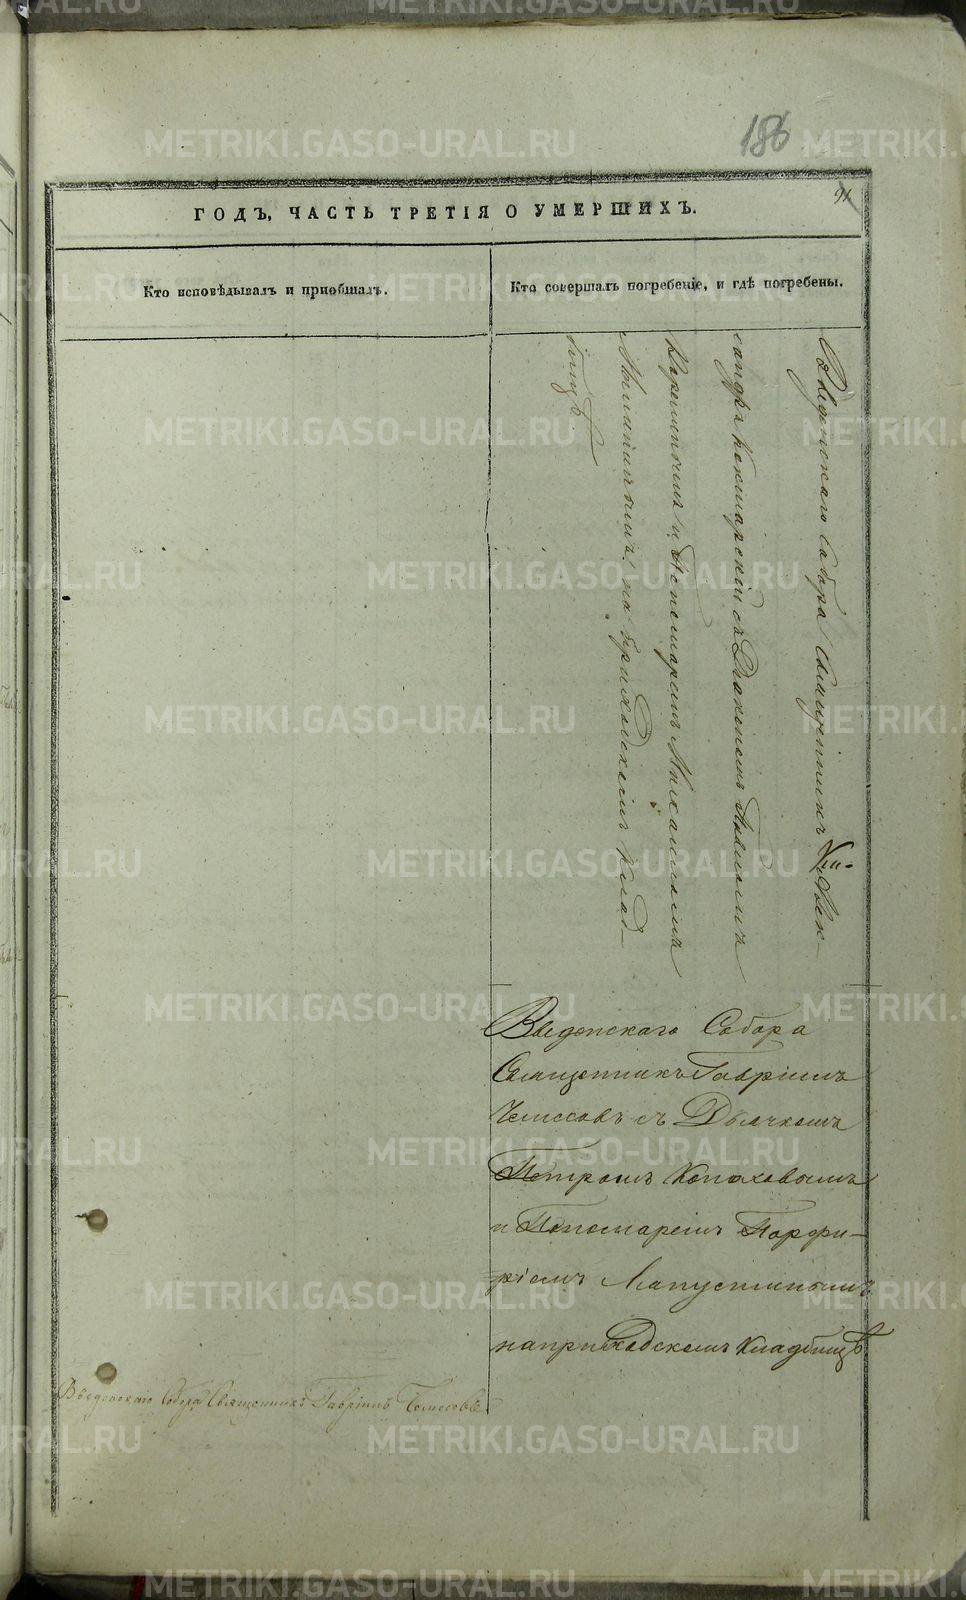 186
91
ГОДЪ, ЧАСТЬ ТРЕТІЯ О УМЕРШИХЪ.
Кто исповѣдывалъ и приобщалъ.
Кто совершалъ погребеніе, и гдѣ погребены.
Введенскаго Собора Священникъ Алек-
сандръ съ Діакономъ
и Пономаремъ Михаиломъ
на приходскомъ клад-
бищѣ
Введенскаго Собора
Священникъ Гавріилъ
Чемесовъ съ Дьячкомъ
Петромъ Конаховымъ
и Пономаремъ Порфи-
ріемъ Лапустинымъ
на приходскомъ кладбищѣ
Введенскаго Собора Священникъ Гавріилъ Чемесовъ
METRIKI.GASO-URAL.RU